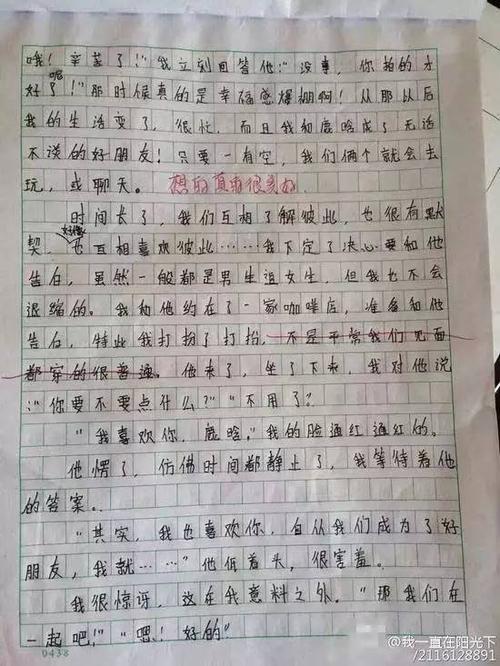 哦！辛苦了！"我立刻回答他："没事，你拍的才
好呢了！"那时候真的是幸福感爆棚啊！从那以后
我的生活变了，很忙，而且我和鹿晗成了无话
不谈的好朋友！只要一有空，我们俩个就会去
玩，或聊天。想的真有很美好
时间长了，我们互相了解彼此，也很有默
契，好像也互相喜欢彼此……我下定了决心要和他
告白，虽然一般都是男生追女生，但我也不会
退缩的。我和他约在了一家咖啡店，准备和他
告白，特此我打扮了打扮，不是平常我们见面
都穿的很普通。他来了，坐了下来，我对他说
："你要不要点什么？""不用了？
"我喜欢你，鹿晗。"我的脸通红通红的。
他愣了，仿佛时间都静止了，我等待着他
的答案。
"其实，我也喜欢你，自从我们成为了好
朋友，我就……"他低着头，很害羞。
我很惊讶，这在我意料之外。"那我们在
一起吧！""嗯！好的"
0438
@我一直在阳光下
/2116128891